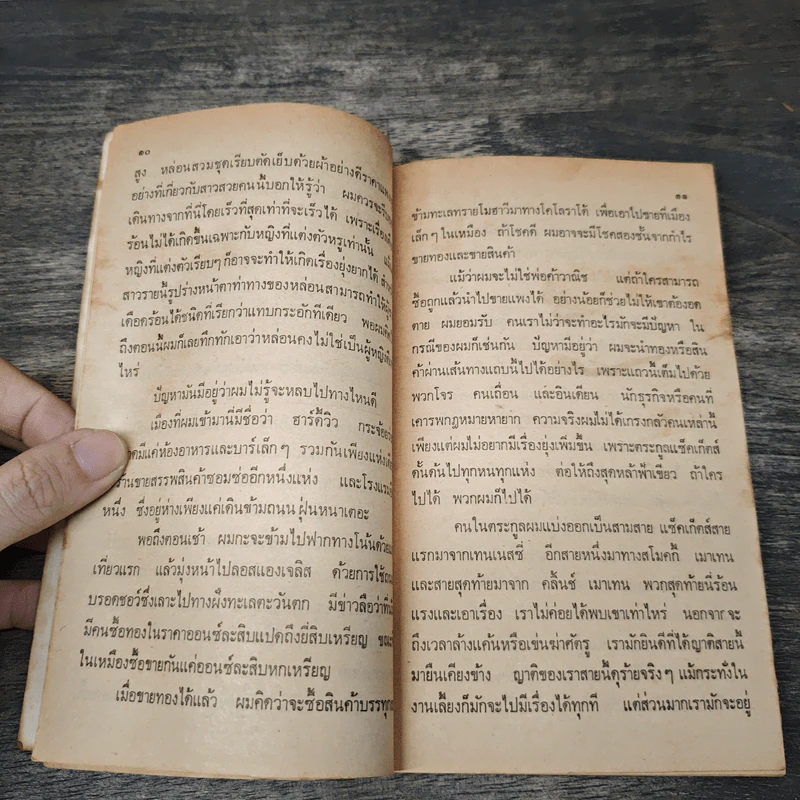 ๑๐
สูง หล่อนสวมชุดเรียบตัดเย็บด้วยผ้าอย่างดีราคาแพง
อย่างที่เกี่ยวกับสาวสวยคนนี้บอกให้รู้ว่า ผมควรจะรีบ
เดินทางจากที่นี่โดยเร็วที่สุดเท่าที่จะเร็วได้ เพราะเรื่อง
ร้อนไม่ได้เกิดขึ้นเฉพาะกับหญิงที่แต่งตัวหรูเท่านั้น
หญิงที่แต่งตัวเรียบๆ ก็อาจจะทำให้เกิดเรื่องยุ่งยากได้
สาวรายนี้รูปร่างหน้าตาท่าทางของหล่อนสามารถทำให้
เดือดร้อนได้ชนิดที่เรียกว่าแทบกระอักทีเดียว พอผมคิด
ถึงตอนนี้ผมก็เลยทึกทักเอาว่าหล่อนคงไม่ใช่เป็นผู้หญิง
ไหร่
ปัญหามันมีอยู่ว่าผมไม่รู้จะหลบไปทางไหนดี
เมืองที่ผมเข้ามานี่มีชื่อว่า ฮาร์ดี้วิว
มีแค่ห้องอาหารและบาร์เล็กๆ รวมกันเพียงแห่ง
ร้านขายสรรพสินค้าซอมซ่ออีกหนึ่งแห่ง และโรงแรม
หนึ่ง ซึ่งอยู่ห่างเพียงแค่เดินข้ามถนน ฝุ่นหนาเตอะ
พอถึงตอนเช้า ผมกะจะข้ามไปฟากทางโน้นด้วย
เที่ยวแรก แล้วมุ่งหน้าไปลอสแองเจลิส ด้วยการใช้
บรอดชอว์ซึ่งเลาะไปทางฝั่งทะเลตะวันตก มีข่าวลือว่าที่
มีคนซื้อทองในราคาออนซ์ละสิบแปดถึงยี่สิบเหรียญ ขณะ
ในเหมืองซื้อขายกันแค่ออนซ์ละสิบหกเหรียญ
เมื่อขายทองได้แล้ว ผมคิดว่าจะซื้อสินค้าบรรทุก
๑๑
ข้ามทะเลทรายโมฮาวีมาทางโคโลราโด้ เพื่อเอาไปขายที่เมือง
เล็กๆ ในเหมือง ถ้าโชคดี ผมอาจจะมีโชคสองชั้นจากกำไร
ขายทองและขายสินค้า
แม้ว่าผมจะไม่ใช่พ่อค้าวาณิช แต่ถ้าใครสามารถ
ซื้อถูกแล้วนำไปขายแพงได้ อย่างน้อยก็ช่วยไม่ให้เขาต้องอด
ตาย ผมยอมรับ คนเราไม่ว่าจะทำอะไรมักจะมีปัญหา ใน
กรณีของผมก็เช่นกัน ปัญหามีอยู่ว่า ผมจะนำทองหรือสิน
ค้าผ่านเส้นทางแถบนี้ไปได้อย่างไร เพราะแถวนี้เต็มไปด้วย
พวกโจร คนเถื่อน และอินเดียน นักธุรกิจหรือคนที่
เคารพกฎหมายหายาก ความจริงผมไม่ได้เกรงกลัวคนเหล่านี้
เพียงแต่ผมไม่อยากมีเรื่องยุ่งเพิ่มขึ้น เพราะตระกูลแซ็คเก็ตส์
ดั้นด้นไปทุกหนทุกแห่ง ต่อให้ถึงสุดหล้าฟ้าเขียว ถ้าใคร
ไปได้ พวกผมก็ไปได้
คนในตระกูลผมแบ่งออกเป็นสามสาย แซ็คเก็ตส์สาย
แรกมาจากเทนเนสซี่ อีกสายหนึ่งมาทางสโมคกี้ เมาเทน
และสายสุดท้ายมาจาก คลิ้นช์ เมาเทน พวกสุดท้ายนี่ร้อน
แรงและเอาเรื่อง เราไม่ค่อยได้พบเขาเท่าไหร่ นอกจากจะ
ถึงเวลาล้างแค้นหรือเข่นฆ่าศัตรู เรามักยินดีที่ได้ญาติสายนี้
มายืนเคียงข้าง ญาติของเราสายนี้ดุร้ายจริงๆ แม้กระทั่งใน
งานเลี้ยงก็มักจะไปมีเรื่องได้ทุกที แต่ส่วนมากเรามักจะอยู่